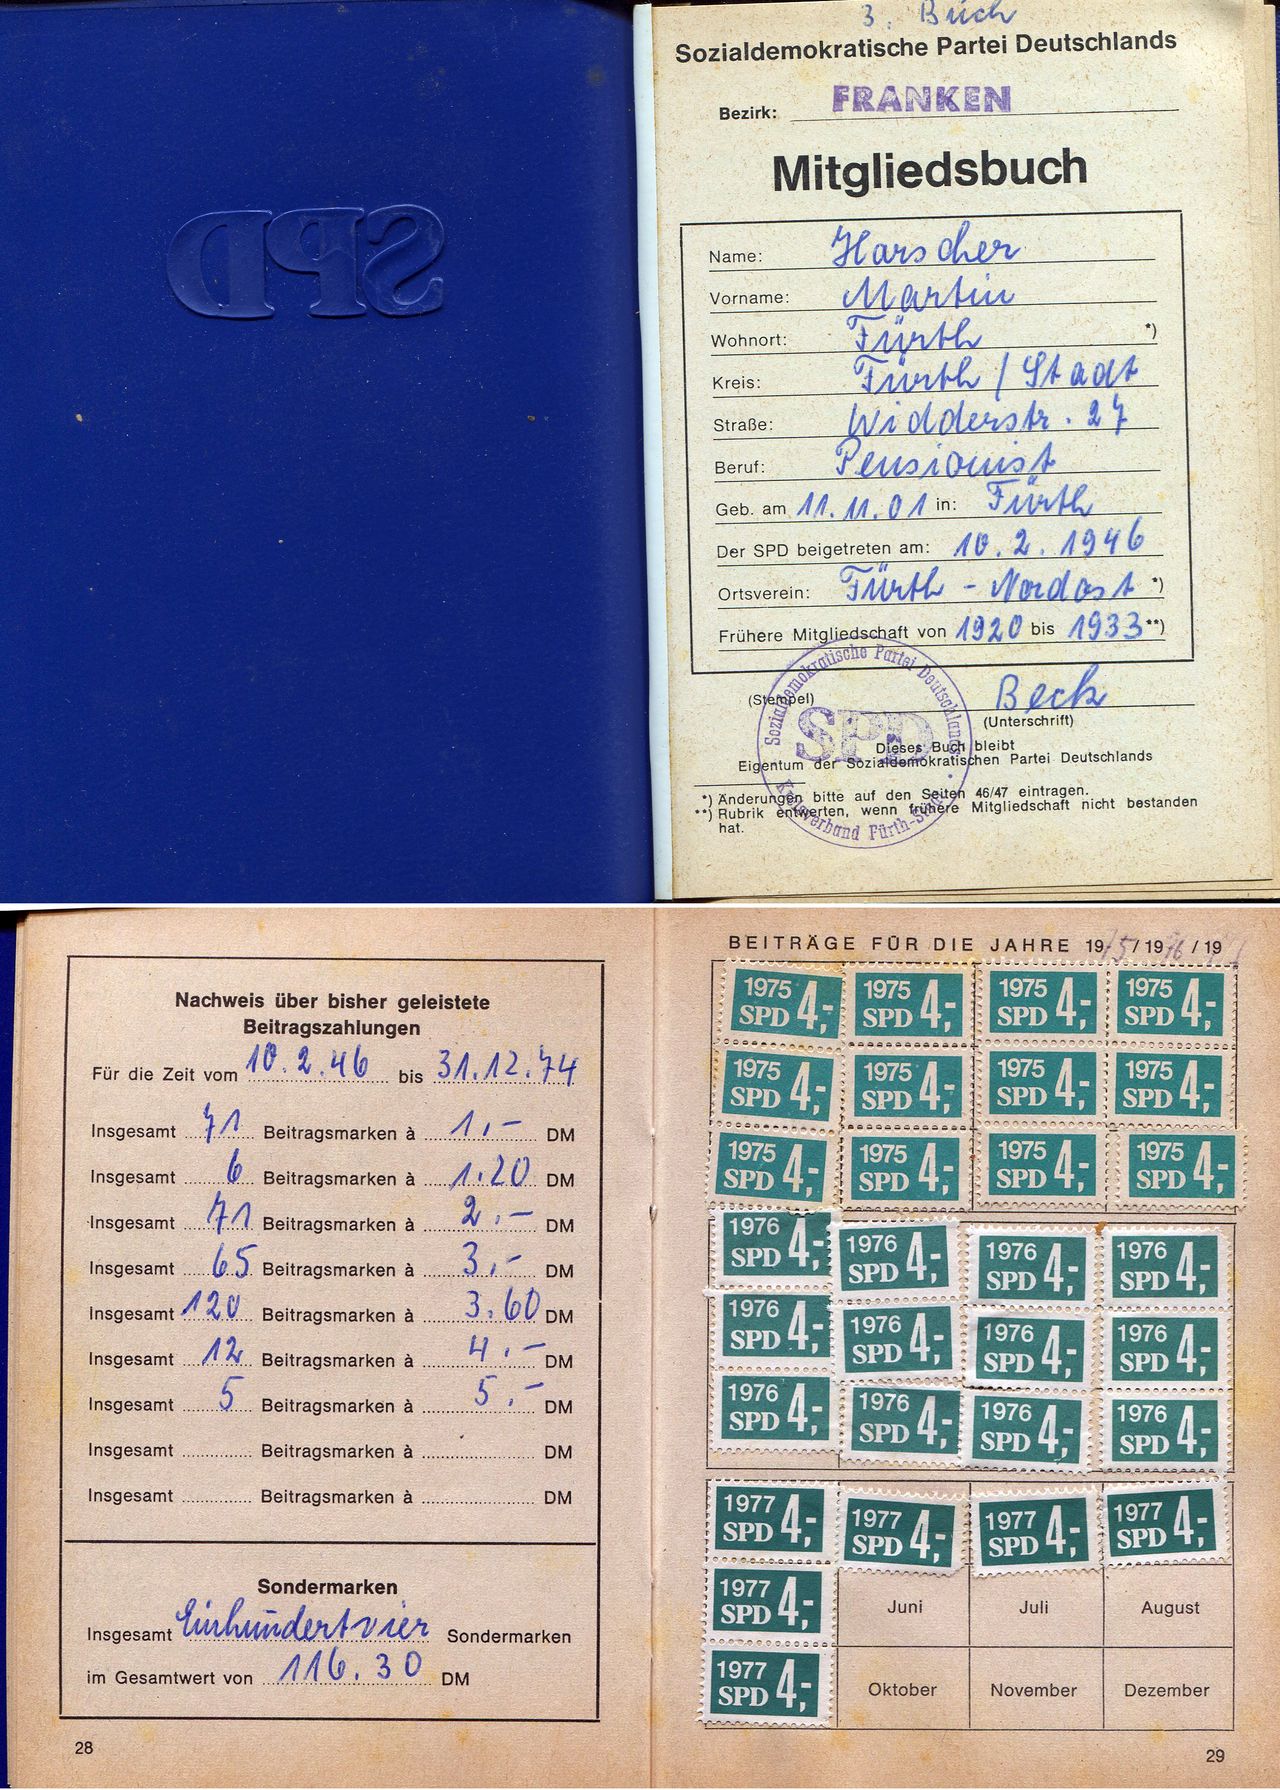 SPD
3. Buch
Sozialdemokratische Partei Deutschlands
Bezirk: FRANKEN
Mitgliedsbuch
Name: Harscher
Vorname: Martin
Wohnort: Fürth *)
Kreis: Fürth / Stadt
Straße: Widderstr. 27
Beruf: Pensionist
Geb. am 11.11.01 in: Fürth
Der SPD beigetreten am: 10.2.1946
Ortsverein: Fürth - Nordost *)
Frühere Mitgliedschaft von 1920 bis 1933 **)
Sozialdemokratische Partei Deutschlands
SPD
Kreisverband Fürth-Stadt
(Stempel) Beck
(Unterschrift)
Dieses Buch bleibt
Eigentum der Sozialdemokratischen Partei Deutschlands
*) Änderungen bitte auf den Seiten 46/47 eintragen.
**) Rubrik entwerten, wenn frühere Mitgliedschaft nicht bestanden
hat.
Nachweis über bisher geleistete
Beitragszahlungen
Für die Zeit vom 10.2.46 bis 31.12.74
Insgesamt 71 Beitragsmarken à 1.- DM
Insgesamt 6 Beitragsmarken à 1.20 DM
Insgesamt 71 Beitragsmarken à 2.- DM
Insgesamt 65 Beitragsmarken à 3.- DM
Insgesamt 120 Beitragsmarken à 3.60 DM
Insgesamt 12 Beitragsmarken à 4.- DM
Insgesamt 5 Beitragsmarken à 5.- DM
Insgesamt Beitragsmarken à DM
Insgesamt Beitragsmarken à DM
Sondermarken
Insgesamt Einhundertvier Sondermarken
im Gesamtwert von 116.30 DM
28
BEITRÄGE FÜR DIE JAHRE 1975/1976/19
1975 SPD 4,- 1975 SPD 4,- 1975 SPD 4,- 1975 SPD 4,-
1975 SPD 4,- 1975 SPD 4,- 1975 SPD 4,- 1975 SPD 4,-
1975 SPD 4,- 1975 SPD 4,- 1975 SPD 4,- 1975 SPD 4,-
1976 SPD 4,- 1976 SPD 4,- 1976 SPD 4,- 1976 SPD 4,-
1976 SPD 4,- 1976 SPD 4,- 1976 SPD 4,- 1976 SPD 4,-
1976 SPD 4,- 1976 SPD 4,- 1976 SPD 4,- 1976 SPD 4,-
1977 SPD 4,- 1977 SPD 4,- 1977 SPD 4,- 1977 SPD 4,-
1977 SPD 4,- Juni Juli August
1977 SPD 4,- Oktober November Dezember
29